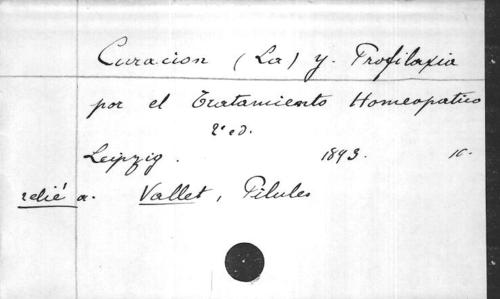 Curacion (La) y. Profilaxia
por el Tratamiento Homeopatico
2e ed.
Leipzig. 1893. 16.
relié a. Vallet, Pilules